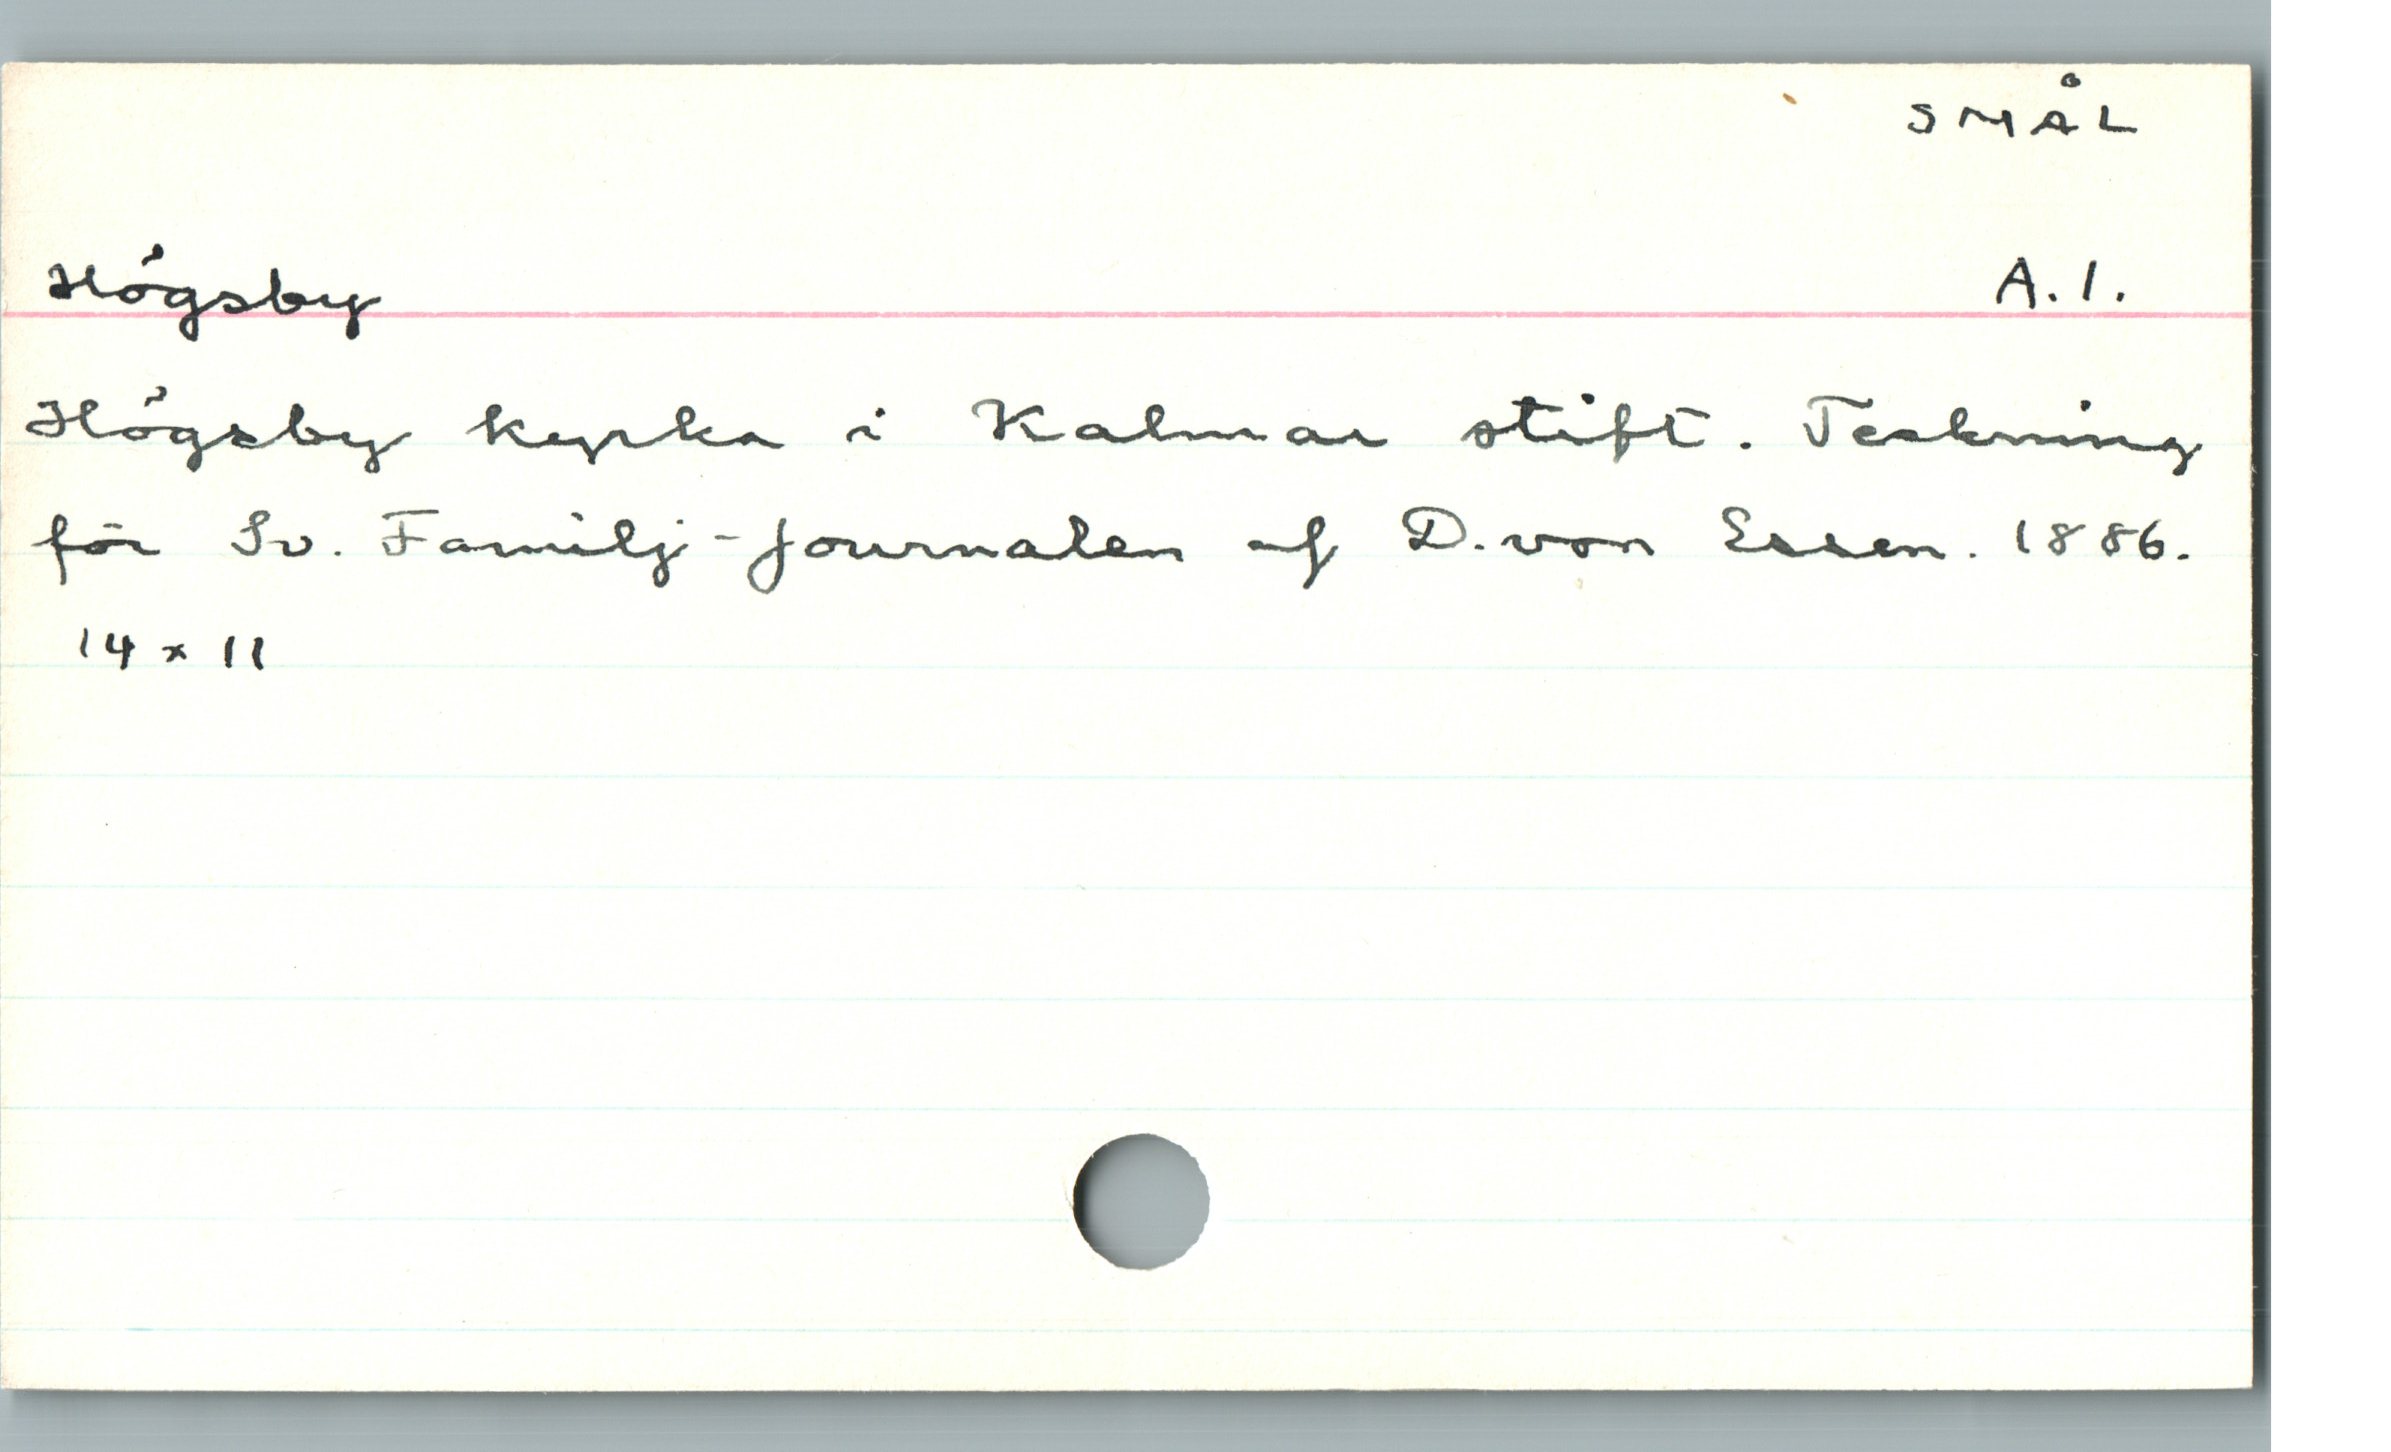 SMÅL
Högsby A. 1.
Högsby kyrka i Kalmar stift. Teckning
för Sv. Familj-Journalen af D. von Essen. 1886.
14 x 11